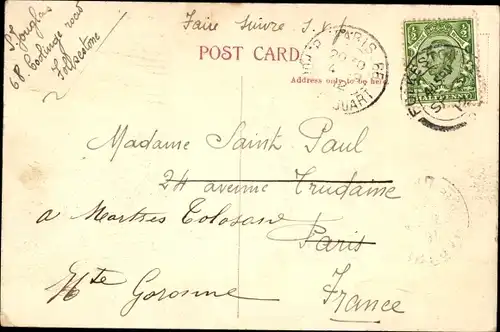 J Douglas
68. Coolinge road
Folkestone
Faire Suivre S.V.P.
POST CARD.
Address only to be here.
PARIS
DEPART
FOLKEST
HALFPENNY
Madame Saint Paul
24 avenue Trudaine
a Martres Tolosane
Paris
Hte Garonne
France